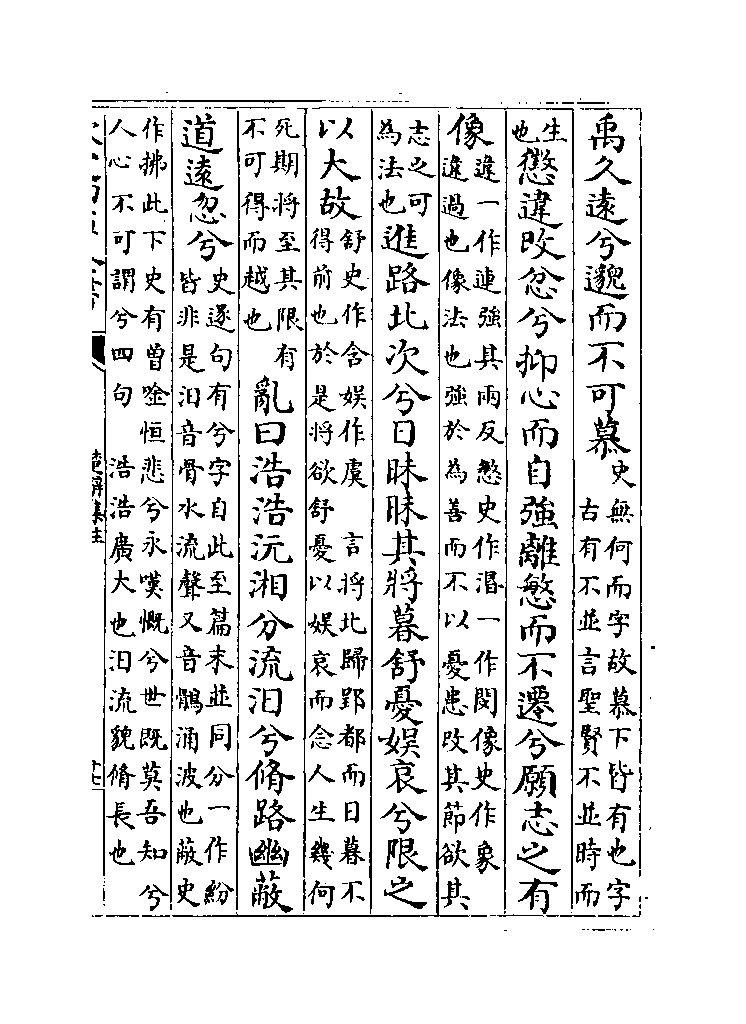 禹久遠兮邈而不可慕史無何而字故慕下皆有也字
古有不並言聖賢不並時而
生
也懲違改忿兮抑心而自強離慜而不遷兮願志之有
像違一作連強其兩反慜史作湣一作閔像史作象
違過也像法也強於為善而不以憂患改其節欲其
志之可
為法也進路北次兮日昧昧其將暮舒憂娛哀兮限之
以大故舒史作含娛作虞 言將北歸郢都而日暮不
得前也於是將欲舒憂以娛哀而念人生幾何
死期將至其限有
不可得而越也亂曰浩浩沅湘分流汨兮脩路幽蔽
道遠忽兮史逐句有兮字自此至篇末並同分一作紛
皆非是汨音骨水流聲又音鶻涌波也蔽史
作拂此下史有曾唫恒悲兮永嘆慨兮世既莫吾知兮
人心不可謂兮四句 浩浩廣大也汨流貌脩長也
楚辭集註